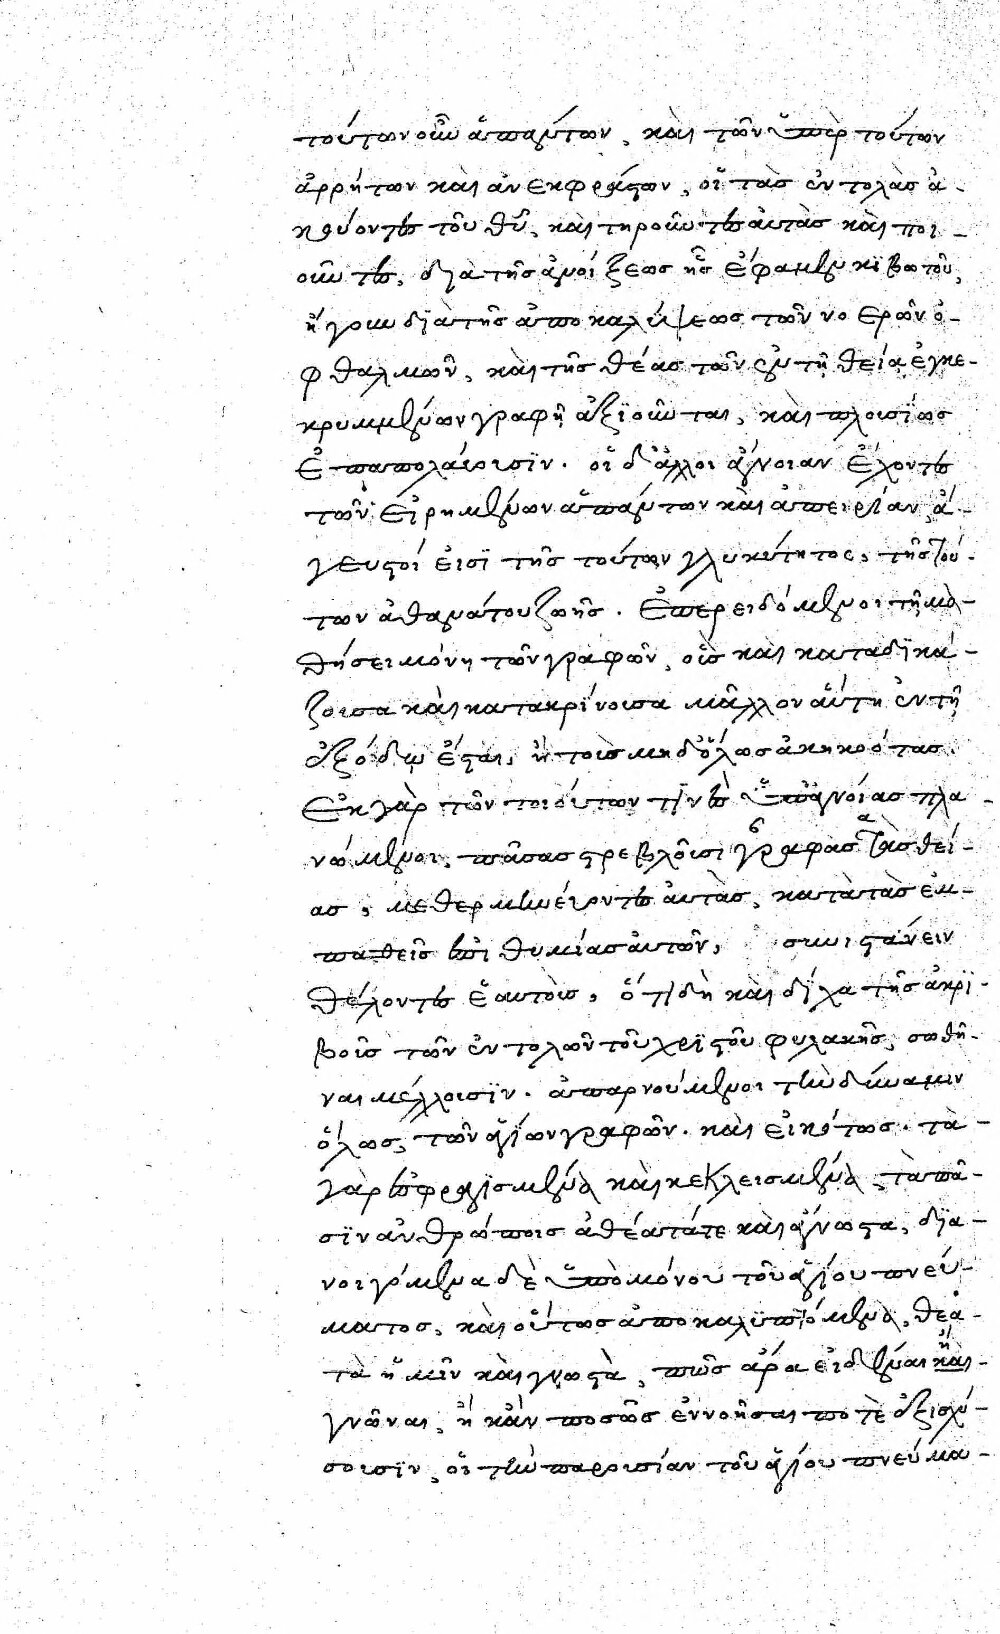 τούτων οὖν ἁπάντων, καὶ τῶν ὑπὲρ τούτων
ἀρρήτων καὶ ἀνεκφράστων, οἱ τὰς ἐντολὰς ἀ-
κούοντες τοῦ θῦ, καὶ τηροῦντες αὐτὰς καὶ ποι-
οῦντες, διὰ τῆς ἀνοίξεως ἧς ἔφαμεν κιβωτοῦ,
ἤγουν διὰ τῆς ἀποκαλύψεως τῶν νοερῶν ὀ-
φθαλμῶν, καὶ τῆς θέας τῶν ἐν τῇ θεία ἐγκε-
κρυμμένων γραφῇ ἀξιοῦνται, καὶ πλουσίως
ἐπαπολάυουσϊν. οἱ δ' ἄλλοι ἄγνοιαν ἔχοντες
τῶν εἰρημένων ἁπάντων καὶ ἀπειρίαν, ἄ-
γευστοί εἰσϊ τῆς τούτων γλυκύτητος, τῆς τού-
των ἀθανάτου ζωῆς. ἐπερειδόμενοι τῇ μα-
θήσει μόνη τῶν γραφῶν, οὓς καὶ καταδικά-
ζουσα καὶ κατακρίνουσα μᾶλλον αὕτη ἐν τῇ
ἐξόδῳ ἔσται, ἢ τοὺς μηδ' ὅλως ἀκηκοότας.
ἐκ γὰρ τῶν τοιούτων τινὲς ὑπ' ἀγνοίας πλα
νώμενοι, πάσας στρεβλοῦσι γραφας τὰς θεί-
ας, μεθερμηνεύοντες αὐτὰς, κατὰ τὰς ἐμ-
παθεῖς ἐπιθυμίας αὐτῶν, συνιστάνειν
θέλοντες ἑαυτοὺς, ὅτι δὴ καὶ δίχα τῆς ἀκρϊ-
βοῦς τῶν ἐντολῶν τοῦ χριστοῦ φυλακῆς, σωθῆ-
ναι μέλλουσϊν. ἀπαρνούμενοι τὴν δύναμιν
ὅλως, τῶν ἁγίων γραφῶν. καὶ εἰκότως. τὰ
γὰρ ἐσφραγισμένα καὶ κεκλεισμένα, τὰ πᾶ-
σϊν ἀνθρώποις ἀθέατά τε καὶ ἄγνωστα, δϊα-
νοιγόμενα δὲ ὑπὸ μόνου τοῦ ἁγίου πνεύ-
ματος, καὶ οὕτως ἀποκαλυπτόμενα, θεα-
τὰ ἡμῖν καὶ γνωστὰ, πῶς ἄρα εἰδέναι ἢ καὶ
γνῶναι, ἢ κἂν ποσῶς ἐννοῆσαι ποτὲ ἐξισχύ-
σουσϊν, οἱ τὴν παρουσίαν τοῦ ἁγίου πνεύμα-